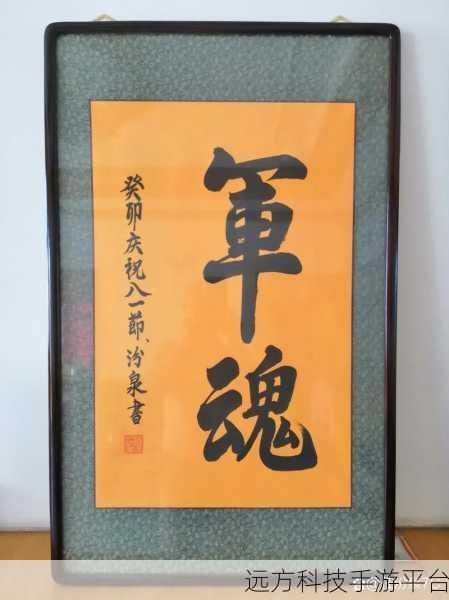 軍魂
癸卯庆祝八一節、汾泉書
远方科技手游平台